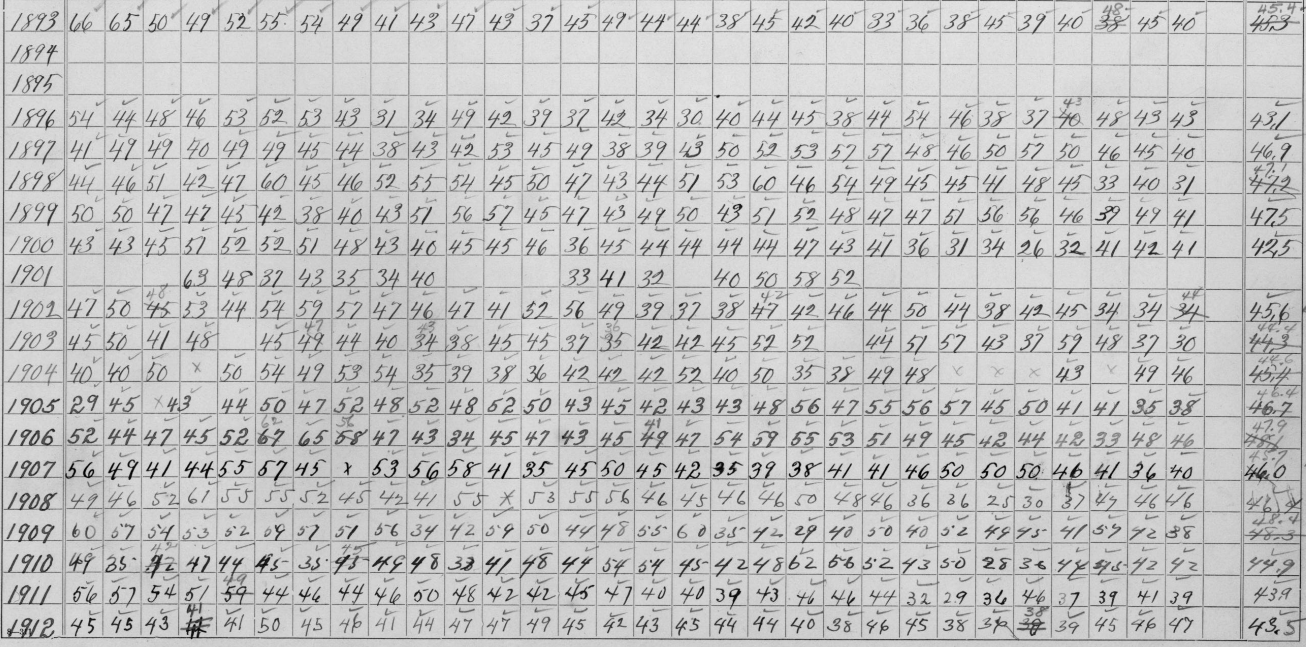 1893 66 65 50 49 52 55 54 49 41 43 47 43 37 45 49 44 44 38 45 42 40 33 36 38 45 39 40 48 45 40 45.4
1894
1895
1896 54 44 48 46 53 52 53 43 31 34 49 42 39 37 42 34 30 40 44 45 38 44 54 46 38 37 43 48 43 43 43.1
1897 41 49 49 40 49 49 45 44 38 43 42 53 45 49 38 39 43 50 52 53 57 57 48 46 50 57 50 46 45 40 46.9
1898 44 46 51 42 47 60 45 46 52 55 54 45 50 47 43 44 51 53 60 46 54 49 45 45 41 48 45 33 40 31 47.1
1899 50 50 47 47 45 42 38 40 43 51 56 57 45 47 43 49 50 43 51 52 48 47 47 51 56 56 46 39 49 41 47.5
1900 43 43 45 51 52 52 51 48 43 40 45 45 46 36 45 44 44 44 44 47 43 41 36 31 34 26 32 41 42 41 42.5
1901 63 48 37 43 35 34 40 33 41 32 40 50 58 52
1902 47 50 48 53 44 54 59 57 47 46 47 41 52 56 49 39 37 38 42 42 46 44 50 44 38 42 45 34 34 44 45.6
1903 45 50 41 48 45 47 44 40 43 38 45 45 37 36 42 42 45 52 52 44 51 57 43 37 59 48 37 30 44.4
1904 40 40 50 x 50 54 49 53 54 35 39 38 36 42 42 42 52 40 50 35 38 49 48 x x x 43 x 49 46 44.6
1905 29 45 x 43 44 50 47 52 48 52 48 52 50 43 45 42 43 43 48 56 47 55 56 57 45 50 41 41 35 38 46.4
1906 52 44 47 45 52 62 65 56 47 43 34 45 47 43 45 41 47 54 59 55 53 51 49 45 42 44 42 33 48 46 47.9
1907 56 49 41 44 55 57 45 x 53 56 58 41 35 45 50 45 42 35 39 38 41 41 46 50 50 50 46 41 36 40 45.7
1908 49 46 52 61 55 55 52 45 42 41 55 x 53 55 56 46 45 46 46 50 48 46 36 36 25 30 37 47 46 46
1909 60 57 54 53 52 59 57 51 56 34 42 59 50 44 48 55 60 35 42 29 40 50 40 52 49 45 41 57 42 38 48.4
1910 49 35 42 47 44 45 35 45 49 48 33 41 48 44 54 54 45 42 48 62 56 52 43 50 28 36 44 45 42 42 44.9
1911 56 57 54 51 49 44 46 44 46 50 48 42 42 45 47 40 40 39 43 46 46 44 32 29 36 46 37 39 41 39 43.9
1912 45 45 43 41 41 50 45 46 41 44 47 47 49 45 42 43 45 44 44 40 38 46 45 38 36 38 39 45 46 47 43.5